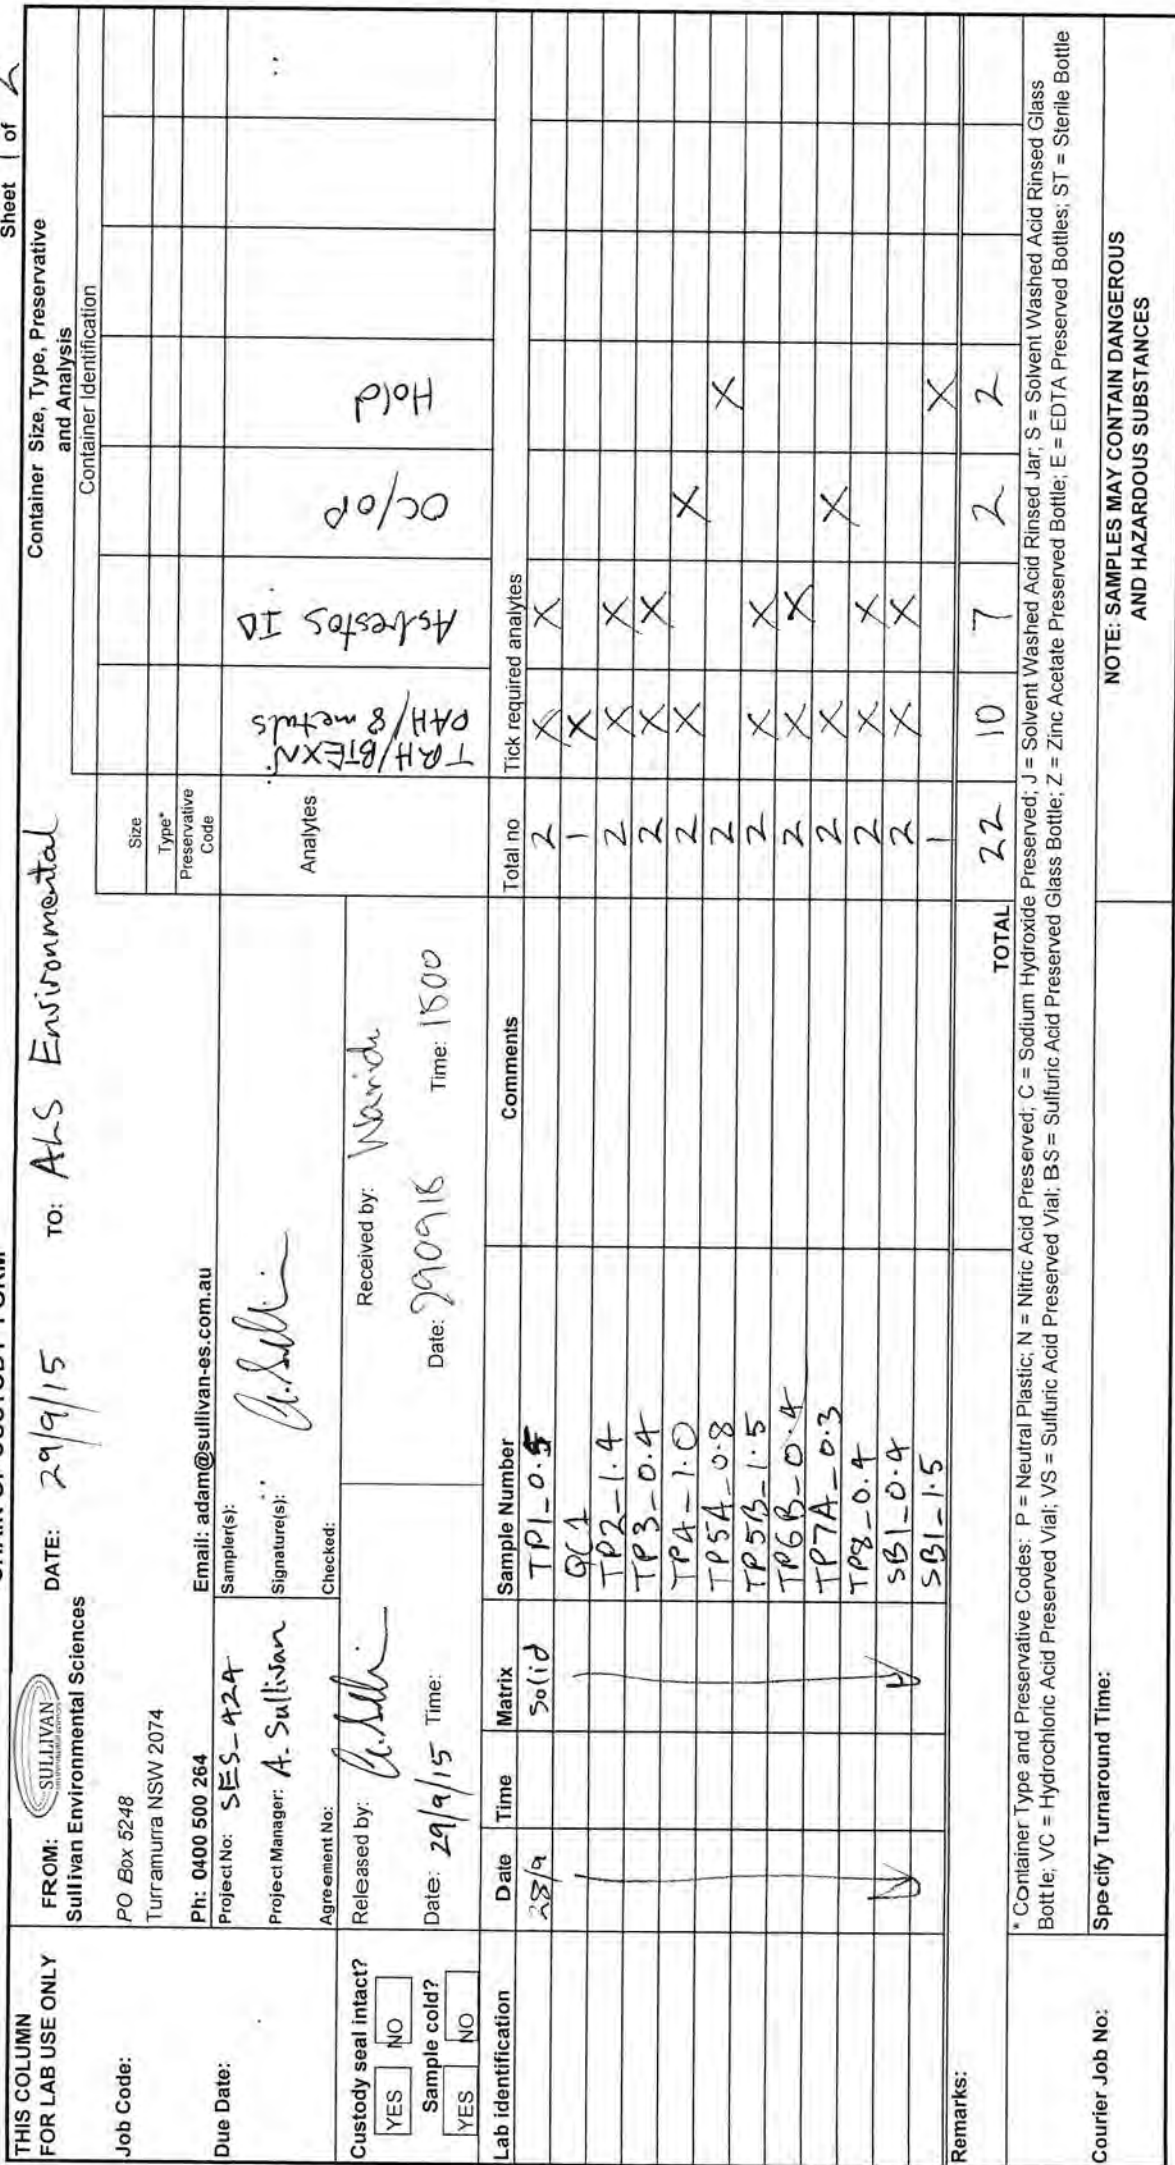 CHAIN OF CUSTODY FORM
Sheet 1 of 2
THIS COLUMN
FOR LAB USE ONLY
Job Code:
Due Date:
Custody seal intact?
YES NO
Sample cold?
YES NO
FROM: SULLIVAN
Sullivan Environmental Sciences
PO Box 5248
Turramurra NSW 2074
Ph: 0400 500 264
DATE: 29/9/15 TO: ALS Environmental
Email: adam@sullivan-es.com.au
Project No: SES_424
Sampler(s):
Project Manager: A. Sullivan
Signature(s):
Agreement No:
Checked:
Released by:
Date: 29/9/15 Time:
Received by:
Date: 290915 Time: 1800
Container Size, Type, Preservative
and Analysis
Container Identification
Size
Type*
Preservative
Code
Analytes
TRH/BTEXN
PAH/8 metals
Asbestos ID
OC/OP
Hold
Lab identification Date Time Matrix Sample Number Comments Total no Tick required analytes
28/9 Solid TP1_0.5 2 X X
QC1 1 X
TP2_1.4 2 X X
TP3_0.4 2 X X
TP4_1.0 2 X X
TP5A_0.8 2 X
TP5B_1.5 2 X X
TP6B_0.4 2 X X
TP7A_0.3 2 X X
TP8_0.4 2 X X
SB1_0.4 2 X X
SB1_1.5 1 X
Remarks:
TOTAL 22 10 7 2 2
* Container Type and Preservative Codes: P = Neutral Plastic; N = Nitric Acid Preserved; C = Sodium Hydroxide Preserved; J = Solvent Washed Acid Rinsed Jar; S = Solvent Washed Acid Rinsed Glass
Bottle; VC = Hydrochloric Acid Preserved Vial; VS = Sulfuric Acid Preserved Vial; BS = Sulfuric Acid Preserved Glass Bottle; Z = Zinc Acetate Preserved Bottle; E = EDTA Preserved Bottles; ST = Sterile Bottle
Courier Job No:
Specify Turnaround Time:
NOTE: SAMPLES MAY CONTAIN DANGEROUS
AND HAZARDOUS SUBSTANCES